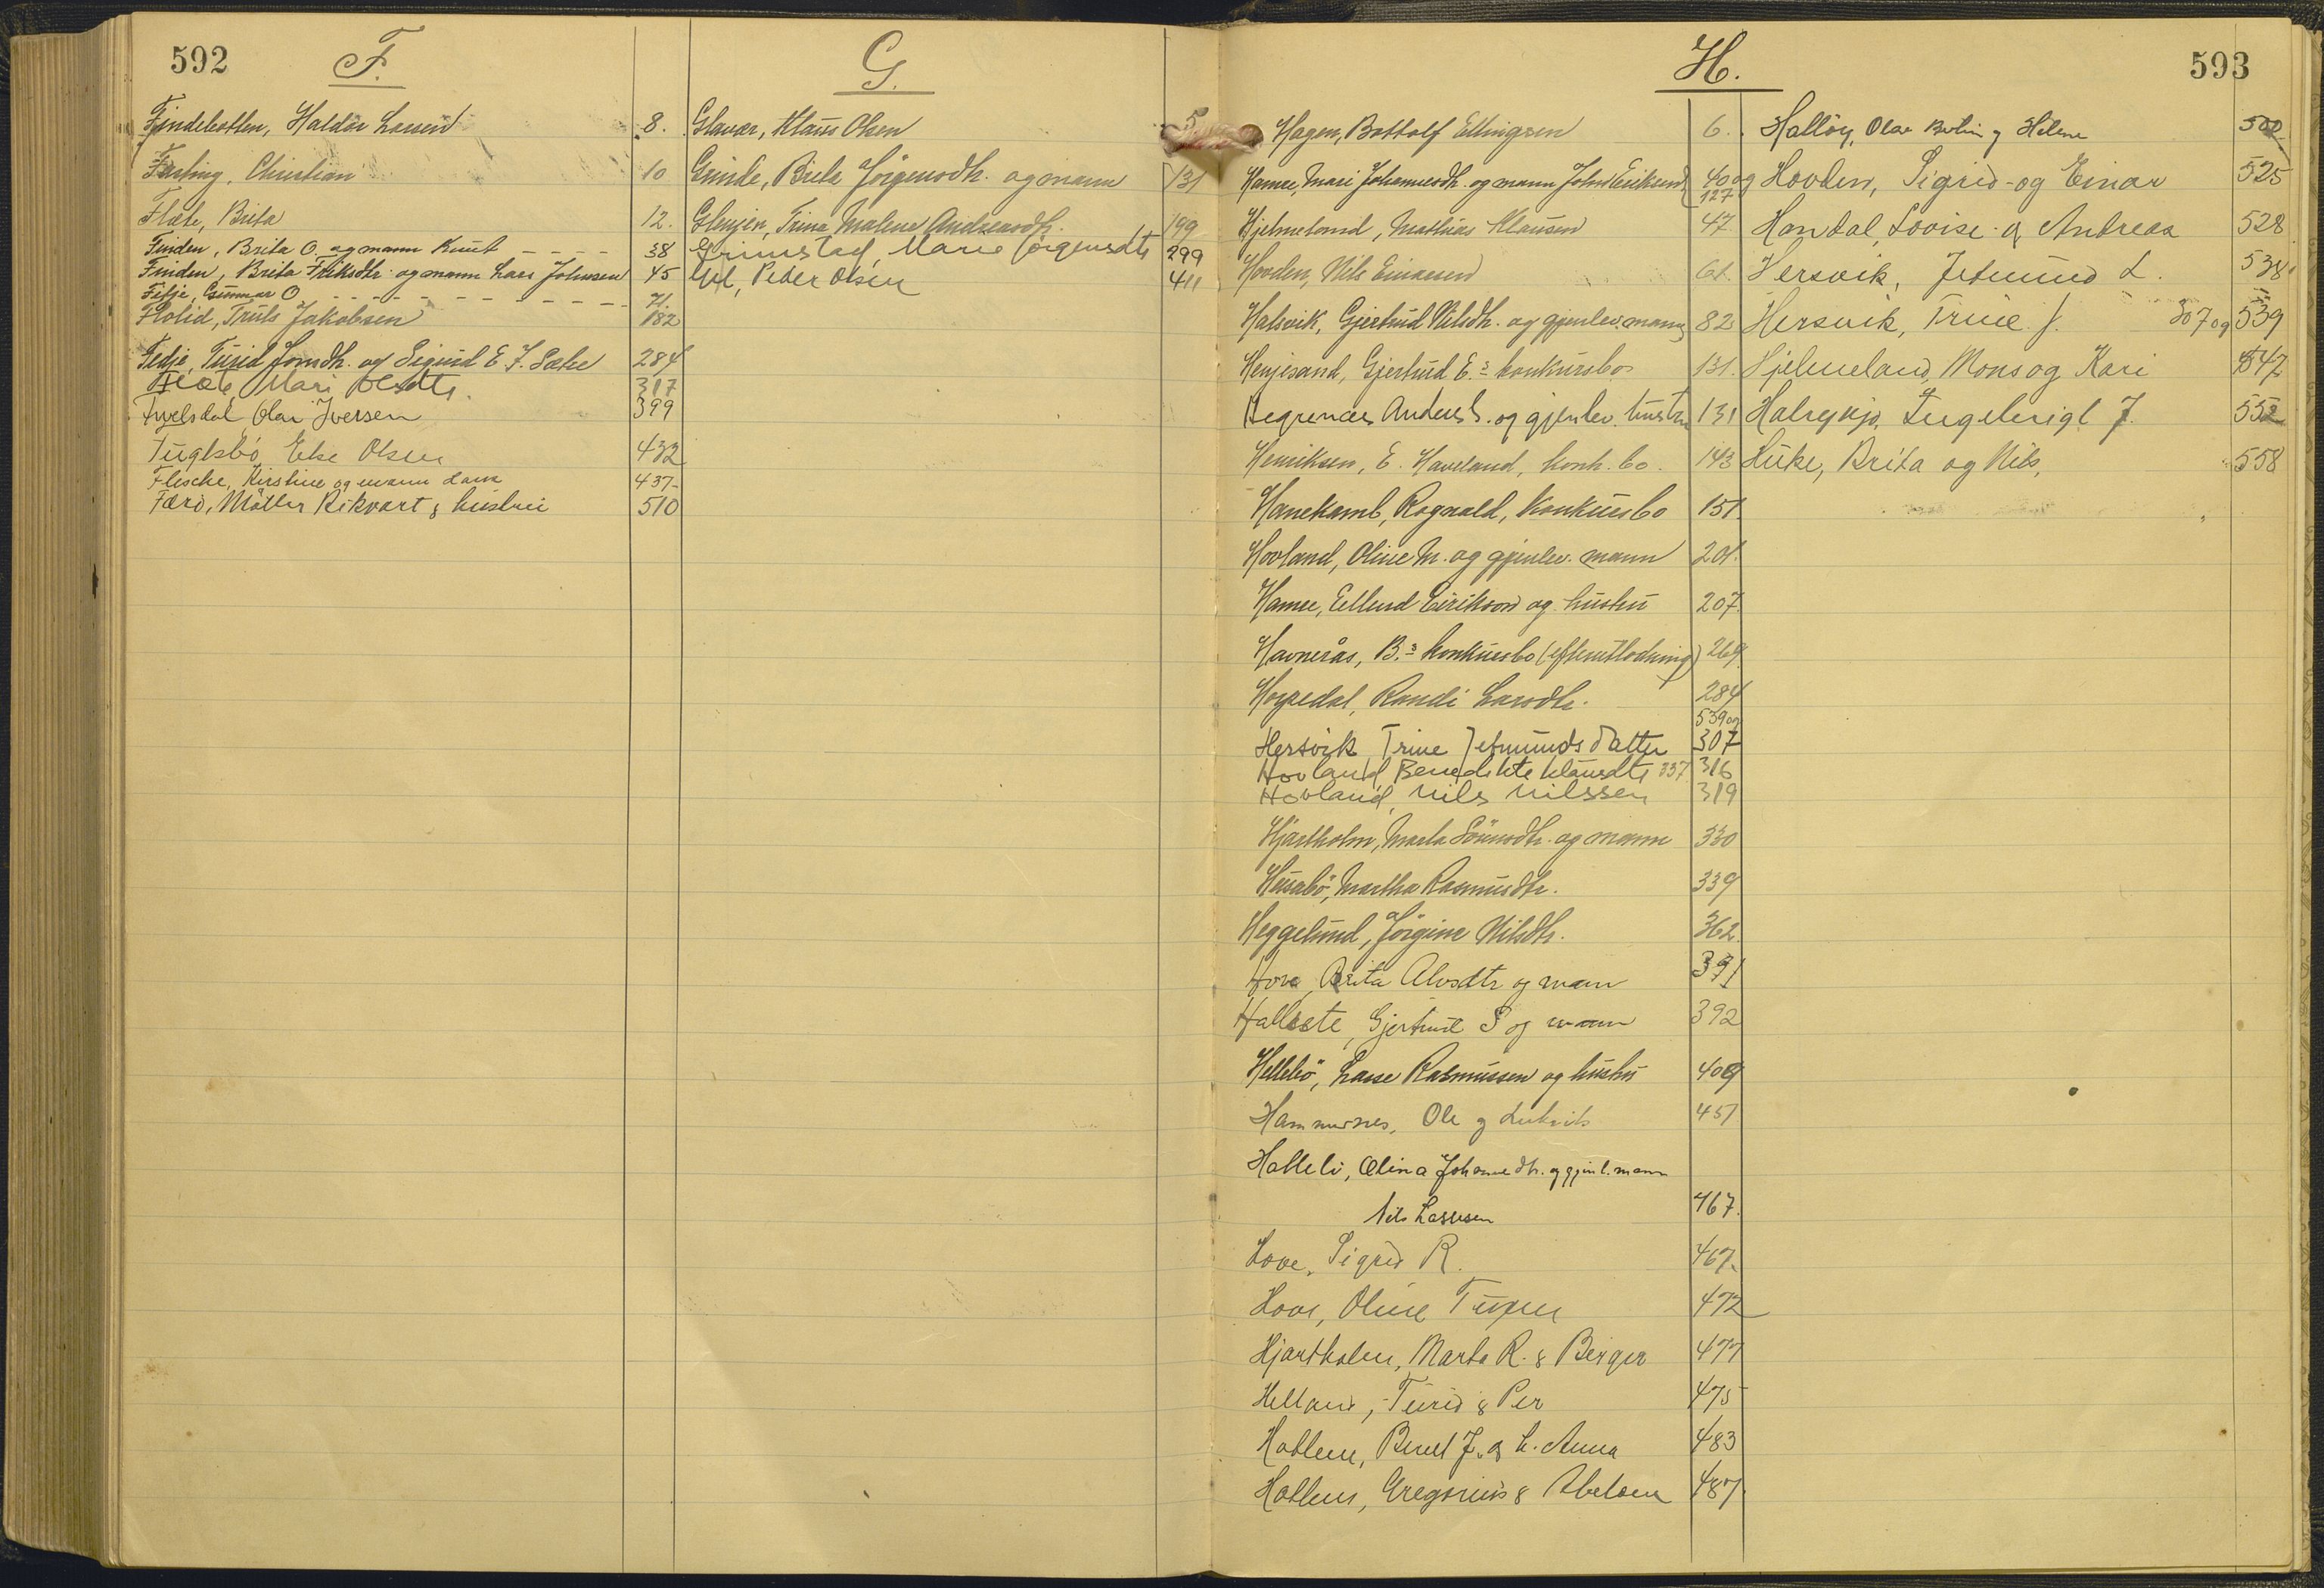 592
F.
Findebotten, Haldor Larsen 8.
Fasting, Christian 10
Flæte, Brita 12.
Finden, Brita O. og mann Knut - - - - 38
Finden, Brita Eriksdtr. og mann Lars Johnsen 45
Fitje, Gunnar O - - - - - - - - - - 71.
Flolid, Truls Jakobsen 182
Fedje, Turid Jonsdtr. og Sigurd E. F. Sæke 284
Flæte, Mari Olsdtr. 317
Fivelsdal, Olai Iversen 399
Fuglsbø, Else Olsen 432
Flesche, Kirstine og mann Lars 437-
Færö, Møller Rikvart & hustru 510
G.
Glavær, Klaus Olsen 5
Grinde, Brita Jørgensdtr. og mann 131
Glenjen, Trina Malene Andreasdtr. 199
Grimstad, Marie Jørgensdtr 299
Gil, Peder Olsen 411
H.
593
Hagen, Bottolf Ellingsen 6.
Hamre, Mari Johannesdtr. og mann John Eriksen 40 og 127
Hjelmeland, Mathias Klausen 47.
Hovden, Nils Einarsen 61.
Halsvik, Gjertrud Nilsdtr. og gjenlev. mann 82
Henjesand, Gjertrud E.s konkursbo 131.
Hegrenes Anders S. og gjenlev. hustru 131
Henriksen, E. Haveland, konk. bo. 143
Hanekamb, Rognald, Konkursbo 151.
Hovland, Oline M. og gjenlev. mann 201.
Hamre, Ellend Eirikson og hustru 207.
Havnerås, B.s konkursbo (efterutlodning) 269.
Hoppedal, Randi Larsdtr. 284
539 og
Hersvik Trine Jetmundsdatter 307
Hovland Benedikte Klausdtr 337 316
Hovland, Nils Nilssen 319
Hjartholm, Marta Sörensdtr. og mann 330
Husabö, Martha Rasmusdtr. 339
Heggelund, Jørgine Nilsdtr. 362.
Hove, Brita Alvsdtr og mann 391
Hallsete, Gjertrud S og mann 392
Hellebö, Lasse Rasmussen og hustru 409
Hammersnes, Ole og Ludvik 457
Halleli, Olina Johannedtr. og gjenl. mann
Nils Lassesen 467.
Hove, Sigrid R. 467.
Hove, Oline Tuxen 472
Hjartholm, Marta R. & Berger 477
Helland, Turid & Per 475
Hatlem, Berul J. & h. Anna 483
Hatlem, Gregorius & Abelone 487.
Halløy, Olav Berlin og Helene 502
Hovden, Sigrid og Einar 525
Handal, Lovise & Andreas 528
Hersvik, Jetmund L. 538
Hersvik, Trine J. 307 og 539
Hjelmeland, Mons og Kari 547
Halrynjo, Ingebrigt J. 552
Huke, Brita og Nils, 558